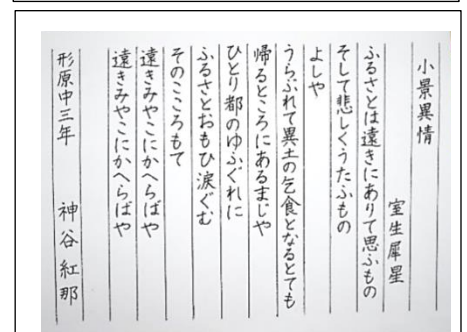 小景異情
室生犀星
ふるさとは遠きにありて思ふもの
そして悲しくうたふもの
よしや
うらぶれて異土の乞食となるとても
帰るところにあるまじや
ひとり都のゆふぐれに
ふるさとおもひ涙ぐむ
そのこころもて
遠きみやこにかへらばや
遠きみやこにかへらばや
形原中三年 神谷紅那